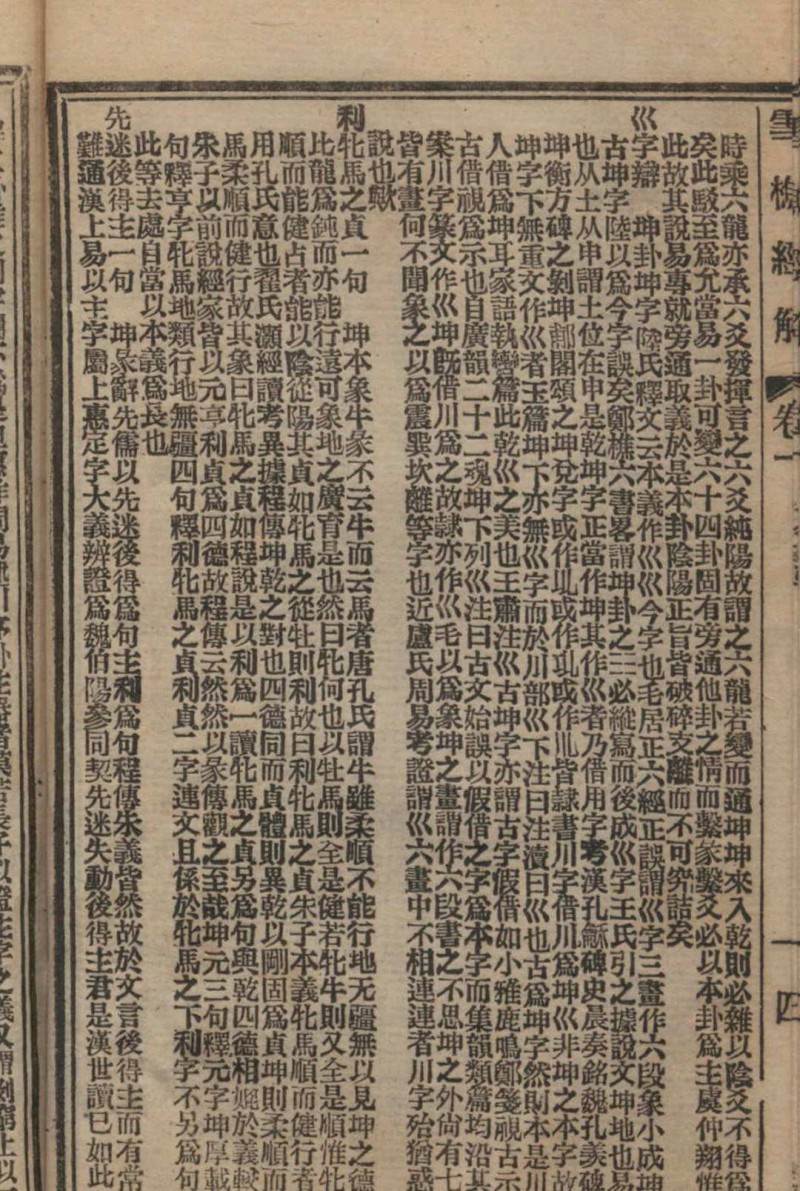 雪樵經解 卷一 一四
時乘六龍亦承六爻發揮言之六爻純陽故謂之六龍若變而通坤坤來入乾則必雜以陰爻不得爲
矣此駁至爲允當易一卦可變六十四卦固有旁通他卦之情而繫彖繫爻必以本卦爲主處仲翔惟
此故其說易專就旁通取義於是本卦陰陽正旨皆破碎支離而不可究詰矣
巛字辯 坤卦坤字陸氏釋文云本義作巛巛今字也毛居正六經正誤謂巛字三畫作六段象小成坤
古坤字陸以爲今字誤矣鄭樵六書畧謂坤卦之三必縱寫而後成巛字王氏引之據說文坤地也易
也从土从申謂土位在申是乾坤字正當作坤其作巛者乃借用字考漢孔龢碑史晨奏銘魏孔羨碑
坤衡方碑之剝坤郙閣頌之坤兌字或作 或作 或作 皆隸書川字借川爲坤巛非坤之本字故
坤字下無重文作巛者玉篇坤下亦無巛字而於川部巛下注曰注瀆曰巛也古爲坤字然則本是川
人借爲坤耳家語執轡篇此乾巛之美也王肅注巛古坤字亦謂古字假借如小雅鹿鳴鄭箋視古示
古借視爲示也自廣韻二十二魂坤下列巛注曰古文始誤以假借之字爲本字而集韻類篇均沿其
案川字篆文作巛坤旣借川爲之故隸亦作巛毛以爲象坤之畫謂作六段書之不思坤之外尙有七
皆有畫何不聞象之以爲震巽坎離等字也近盧氏周易考證謂巛六畫中不相連連者川字殆猶惑
說也歟
利牝馬之貞一句 坤本象牛彖不云牛而云馬者唐孔氏謂牛雖柔順不能行地无疆無以見坤之德
比龍爲鈍而亦能行遠可象地之廣育是也然曰牝何也以牡馬則全是健若牝牛則又全是順惟牝
順而能健占者能以陰從陽其貞如牝馬之從牡則利故曰利牝馬之貞朱子本義牝馬順而健行者
用孔氏意也翟氏灝經讀考異據程傳坤乾之對也四德同而貞體則異乾以剛固爲貞坤則柔順而
馬柔順而健行故其象曰牝馬之貞如程說是以利爲一讀牝馬之貞另爲句與乾四德相 於義較
朱子以前說經家皆以元亨利貞爲四德故程傳云然然以彖傳觀之至哉坤元三句釋元字坤厚載
句釋亨字牝馬地類行地無疆四句釋利牝馬之貞利貞二字連文且係於牝馬之下利字不另爲句
此等去處自當以本義爲長也
先迷後得主一句 坤彖辭先儒以先迷後得爲句主利爲句程傳朱義皆然故於文言後得主而有常
難通漢上易以主字屬上惠定宇大義辨證爲魏伯陽參同契先迷失動後得主君是漢世讀已如此